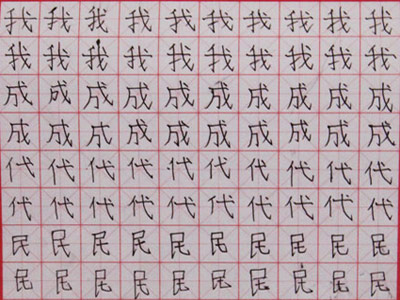 我我我我我我我我我我
我我我我我我我我我我
成成成成成成成成成成
成成成成成成成成成成
代代代代代代代代代代
代代代代代代代代代代
民民民民民民民民民民
民民民民民民民民民民